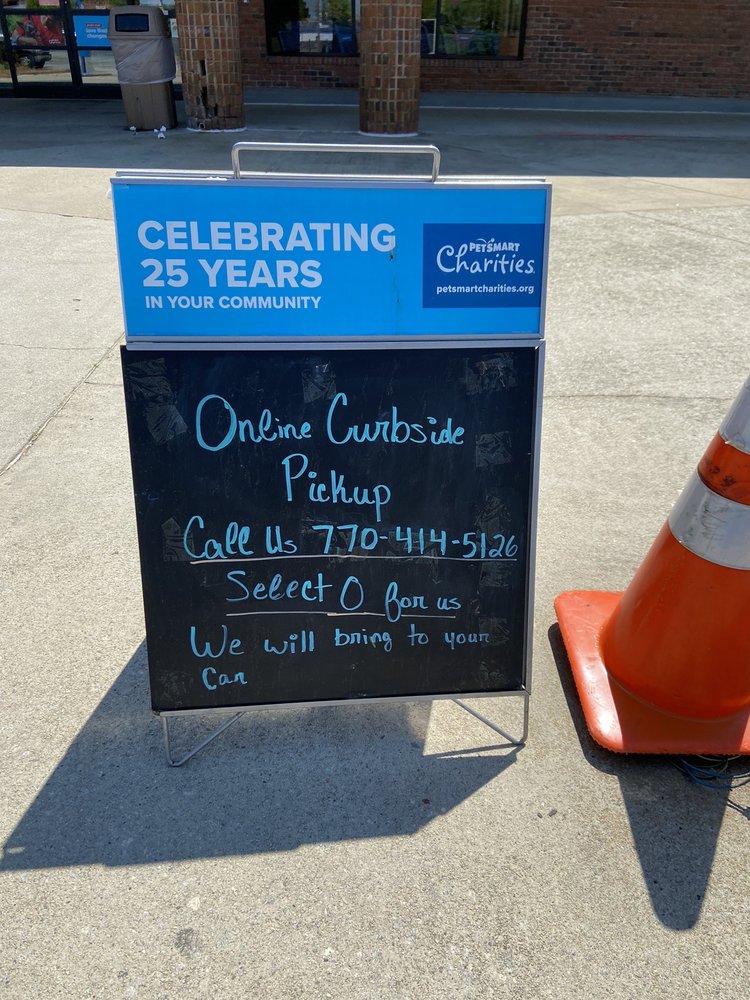 CELEBRATING
25 YEARS
IN YOUR COMMUNITY
PETSMART
Charities
petsmartcharities.org
Online Curbside
Pickup
Call Us 770-414-5126
Select 0 for us
We will bring to your
Car